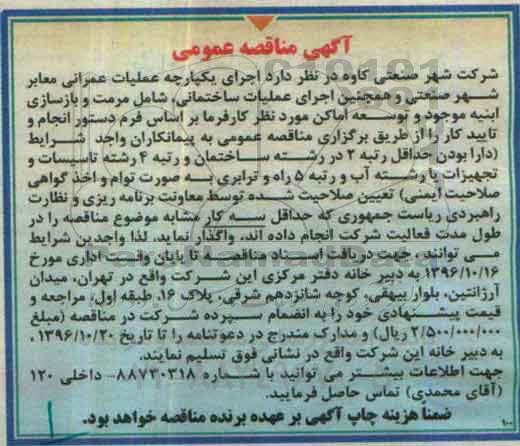 آگهی مناقصه عمومی
شرکت شهر صنعتی کاوه در نظر دارد اجرای یکپارچه عملیات عمرانی معابر
شهر صنعتی و همچنین اجرای عملیات ساختمانی، شامل مرمت و بازسازی
ابنیه موجود و توسعه اماکن مورد نظر کارفرما بر اساس فرم دستور انجام و
تایید کار را از طریق برگزاری مناقصه عمومی به پیمانکاران واجد شرایط
(دارا بودن حداقل رتبه ۲ در رشته ساختمان و رتبه ۴ رشته تاسیسات و
تجهیزات یا رشته آب و رتبه ۵ راه و ترابری به صورت توام و اخذ گواهی
صلاحیت ایمنی) تعیین صلاحیت شده توسط معاونت برنامه ریزی و نظارت
راهبردی ریاست جمهوری که حداقل سه کار مشابه موضوع مناقصه را در
طول مدت فعالیت شرکت انجام داده اند، واگذار نماید. لذا واجدین شرایط
می توانند، جهت دریافت اسناد مناقصه تا پایان وقت اداری مورخ
۱۳۹۶/۱۰/۱۶ به دبیر خانه دفتر مرکزی این شرکت واقع در تهران، میدان
آرژانتین، بلوار بیهقی، کوچه شانزدهم شرقی، پلاک ۱۶، طبقه اول، مراجعه و
قیمت پیشنهادی خود را به انضمام سپرده شرکت در مناقصه (مبلغ
۲/۵۰۰/۰۰۰/۰۰۰ ریال) و مدارک مندرج در دعوتنامه را تا تاریخ ۱۳۹۶/۱۰/۲۰ ،
به دبیر خانه این شرکت واقع در نشانی فوق تسلیم نمایند.
جهت اطلاعات بیشتر می توانید با شماره ۸۸۷۳۰۳۱۸- داخلی ۱۲۰
(آقای محمدی) تماس حاصل فرمایید.
ضمناً هزینه چاپ آگهی بر عهده برنده مناقصه خواهد بود.